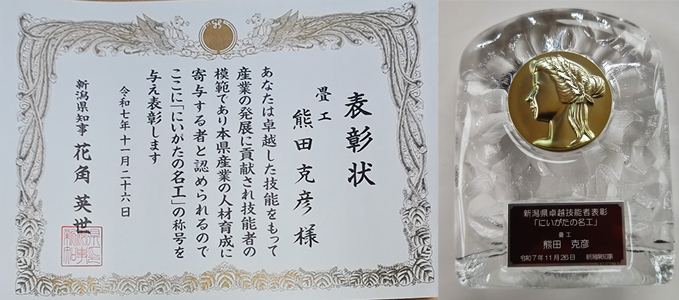 表彰状
畳工
熊田克彦様
あなたは卓越した技能をもって
産業の発展に貢献され技能者の
模範であり本県産業の人材育成に
寄与する者と認められるので
ここに「にいがたの名工」の称号を
与え表彰します
令和七年十一月二十六日
新潟県知事 花角英世
新潟県卓越技能者表彰
「にいがたの名工」
畳工
熊田 克彦
令和7年11月26日 新潟県知事